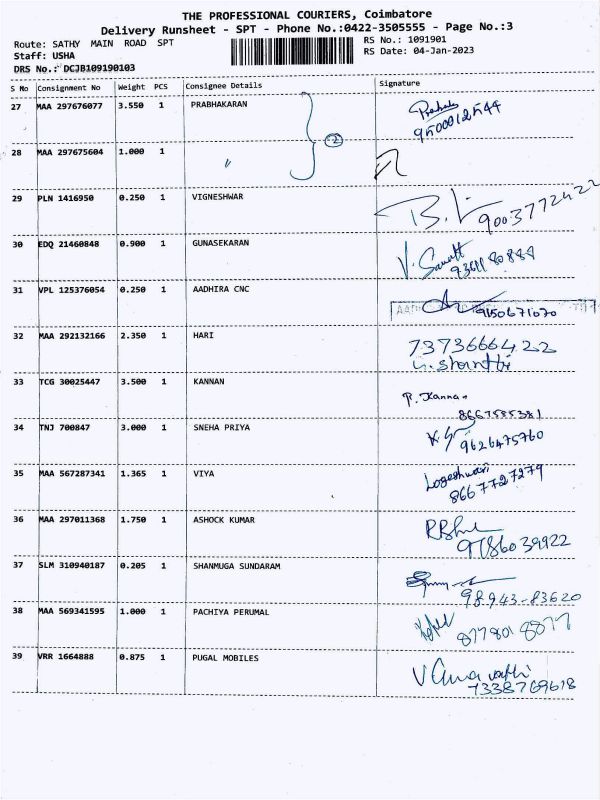 THE PROFESSIONAL COURIERS, Coimbatore
Delivery Runsheet - SPT - Phone No.:0422-3505555 - Page No.:3
Route: SATHY MAIN ROAD SPT
RS No.: 1091901
Staff: USHA
RS Date: 04-Jan-2023
DRS No.: DCJB109190103
S No Consignment No Weight PCS Consignee Details Signature
27 MAA 297676077 3.550 1 PRABHAKARAN
9500012544
2
28 MAA 297675604 1.000 1 "
29 PLN 1416950 0.250 1 VIGNESHWAR
9003772422
30 EDQ 21460848 0.900 1 GUNASEKARAN
31 VPL 125376054 0.250 1 AADHIRA CNC
9150671070
32 MAA 292132166 2.350 1 HARI 7373666422
33 TCG 30025447 3.500 1 KANNAN P. Kannan
8667585381
34 TNJ 700847 3.000 1 SNEHA PRIYA
9626475760
35 MAA 567287341 1.365 1 VIYA Logeshwari
8667727279
36 MAA 297011368 1.750 1 ASHOCK KUMAR
9786039922
37 SLM 310940187 0.205 1 SHANMUGA SUNDARAM
98943-83620
38 MAA 569341595 1.000 1 PACHIYA PERUMAL
8778018877
39 VRR 1664888 0.875 1 PUGAL MOBILES
7338769618